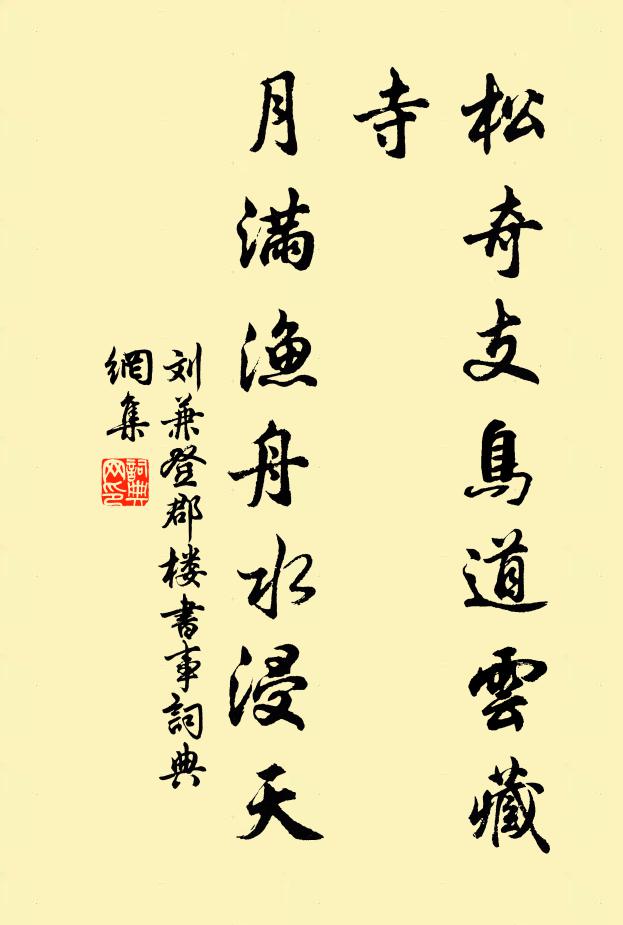 松奇支鳥道雲藏
寺
月滿漁舟水浸天
刘兼登郡楼書事詞典
網集
詞典
网印